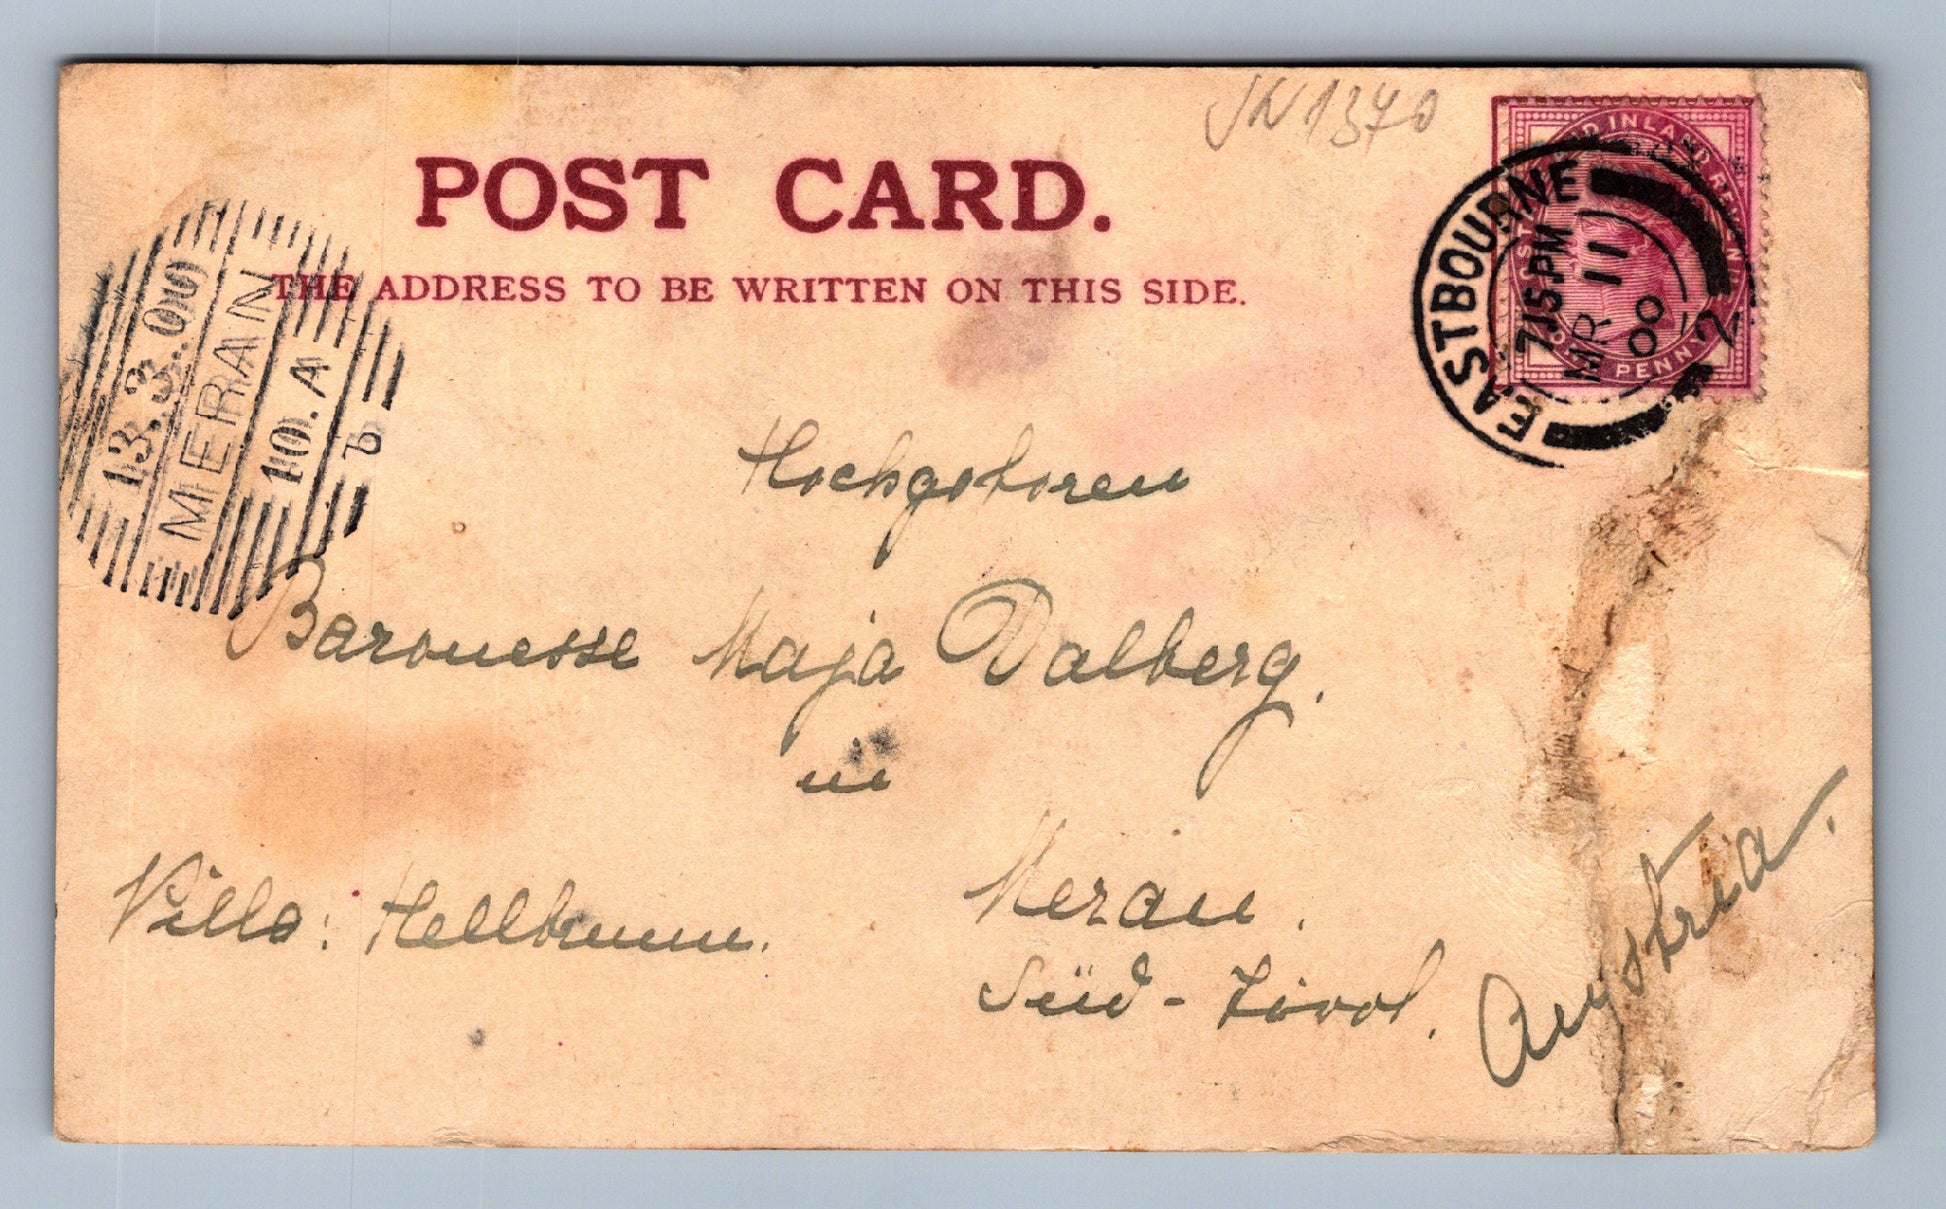 JN 1370
POST CARD.
THE ADDRESS TO BE WRITTEN ON THIS SIDE.
EASTBOURNE
7 15 PM
MR 11
00
INLAND REVENUE
PENNY
13.3.00
MERAN
10.A
b
Hochgeboren
Baronesse Maja Dalberg.
in
Villa: Hellbrunn.
Meran.
Süd-Tirol.
Austria.